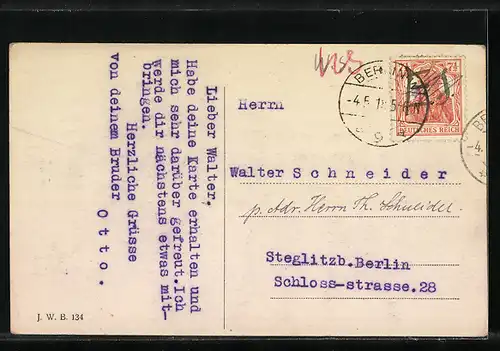 Lieber Walter.
Habe deine Karte erhalten und
mich sehr darüber gefreut.Ich
werde dir nächstens etwas mit-
bringen.
Herzliche Grüsse
von deinem Bruder
Otto.
J. W. B. 134
BERLIN
-4.5.18.5
9
7½
DEUTSCHES REICH
BE
-4.
Herrn
Walter Schneider
p. Adr. Herrn Th. Schneider.
Steglitzb.Berlin
Schloss-strasse.28